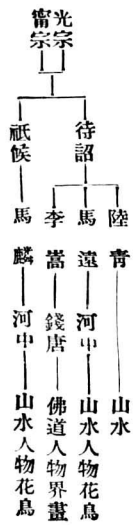 光宗
甯宗
待詔
陸青 山水
馬遠 河中 山水人物花鳥
李嵩 錢唐 佛道人物界畫
祇候
馬麟 河中 山水人物花鳥